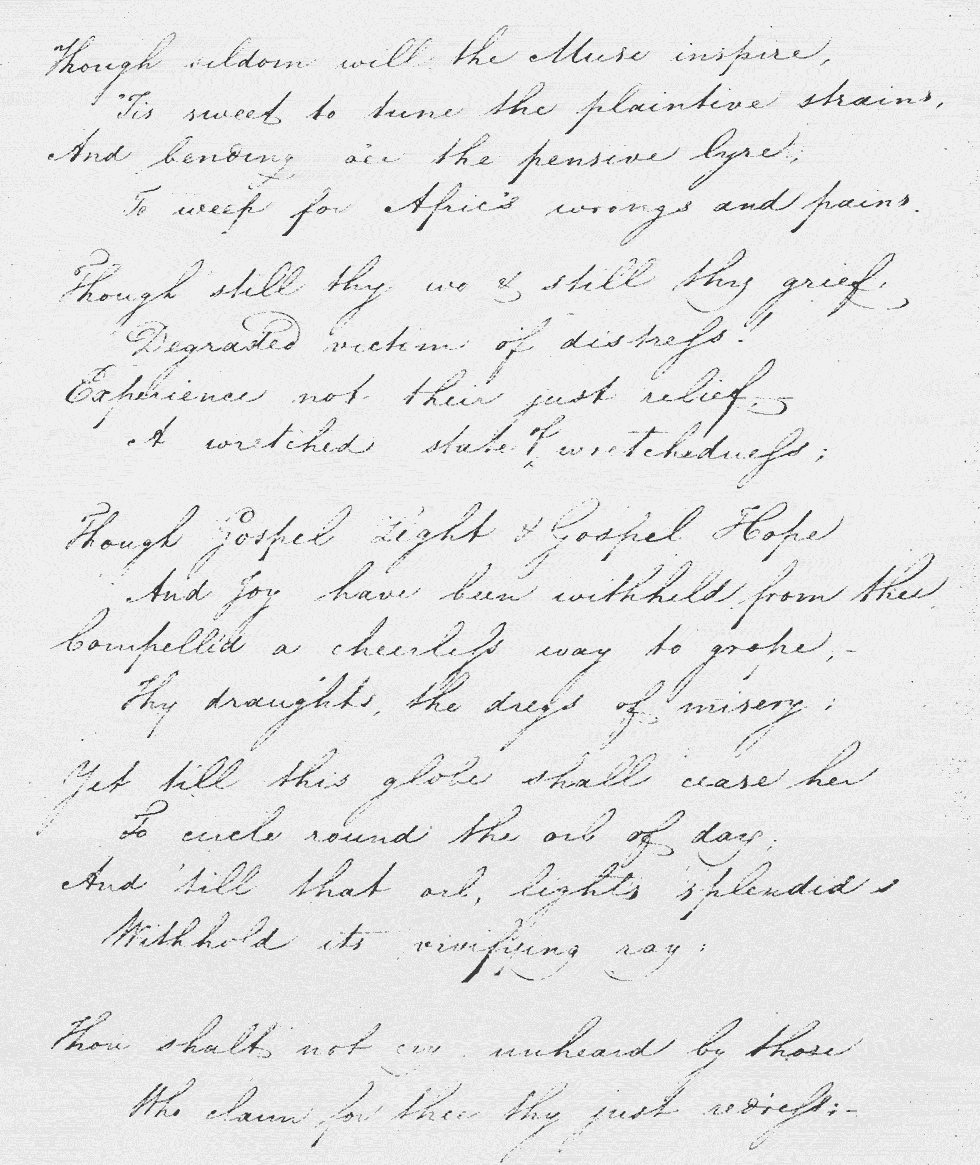 Though seldom will the Muse inspire,
'Tis sweet to tune the plaintive strains,
And bending o'er the pensive lyre,
To weep for Afric's wrongs and pains.
Though still thy wo & still thy grief,
Degraded victim of distress!
Experience not their just relief,—
A wretched state of wretchedness;
Though Gospel Light & Gospel Hope
And Joy have been withheld from thee,
Compell'd a cheerless way to grope,—
Thy draughts, the dregs of misery;
Yet till this globe shall cease her
To circle round the orb of day;
And 'till that orb, light's splendid s
Withhold its vivifying ray;
Thou shalt not cry unheard by those
Who claim for thee thy just redress;—